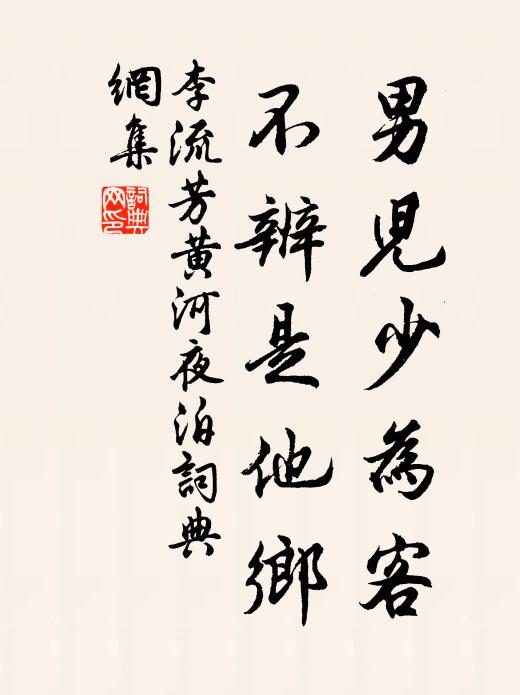 男兒少為客
不辨是他鄉
李流芳黃河夜泊詞典
網集
詞典
网印